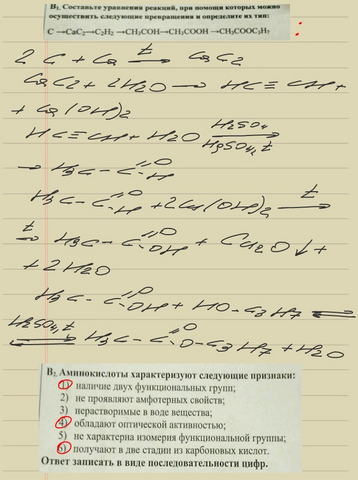 В₁. Составьте уравнения реакций, при помощи которых можно
осуществить следующие превращения и определите их тип:
C →CaC₂→C₂H₂ →CH₃COH→CH₃COOH →CH₃COOC₃H₇
2 C + Ca →t CaC₂
CaC₂ + 2H₂O → HC≡CH +
+ Ca(OH)₂
HC≡CH + H₂O H₂SO₄ HgSO₄, t →
→ H₃C – C =O –H
H₃C – C =O –H + 2Cu(OH)₂ t →
t → H₃C – C =O –OH + Cu₂O↓ +
+ 2H₂O
H₃C – C =O –OH + HO–C₃H₇ ⇌
H₂SO₄, t ⇌ H₃C – C =O –O–C₃H₇ + H₂O
В₂. Аминокислоты характеризуют следующие признаки:
1) наличие двух функциональных групп;
2) не проявляют амфотерных свойств;
3) нерастворимые в воде вещества;
4) обладают оптической активностью;
5) не характерна изомерия функциональной группы;
6) получают в две стадии из карбоновых кислот.
Ответ записать в виде последовательности цифр.